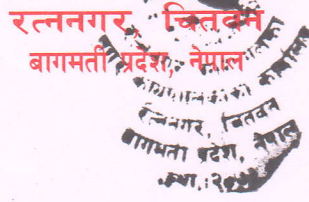 रत्ननगर, चितवन
बागमती प्रदेश, नेपाल
नगरपालिकाको कार्यालय
रत्ननगर, चितवन
बागमती प्रदेश, नेपाल
स्था.